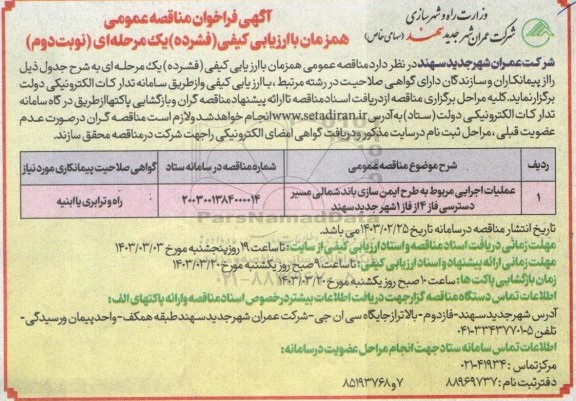 وزارت راه و شهرسازی
شرکت عمران شهر جدید سهند (سهامی خاص)
آگهی فراخوان مناقصه عمومی
همزمان با ارزیابی کیفی (فشرده) یک مرحله‌ای (نوبت دوم)
شرکت عمران شهر جدید سهند در نظر دارد مناقصه عمومی همزمان با ارزیابی کیفی (فشرده) یک مرحله‌ای به شرح جدول ذیل
را از پیمانکاران و سازندگان دارای گواهی صلاحیت در رشته مرتبط، با ارزیابی کیفی و از طریق سامانه تدارکات الکترونیکی دولت
برگزار نماید. کلیه مراحل برگزاری مناقصه از دریافت اسناد مناقصه تا ارائه پیشنهاد مناقصه گران و بازگشایی پاکتها از طریق درگاه سامانه
تدارکات الکترونیکی دولت (ستاد) به آدرس www.setadiran.ir انجام خواهد شد و لازم است مناقصه گران در صورت عدم
عضویت قبلی، مراحل ثبت نام در سایت مذکور و دریافت گواهی امضای الکترونیکی را جهت شرکت در مناقصه محقق سازند.
ردیف شرح موضوع مناقصه عمومی شماره مناقصه در سامانه ستاد گواهی صلاحیت پیمانکاری مورد نیاز
۱ عملیات اجرایی مربوط به طرح ایمن سازی باند شمالی مسیر دسترسی فاز ۴ از فاز ۱ شهر جدید سهند ۲۰۰۳۰۰۱۳۸۴۰۰۰۰۱۴ راه و ترابری یا ابنیه
تاریخ انتشار مناقصه در سامانه تاریخ ۱۴۰۳/۰۲/۲۵ می باشد.
مهلت زمانی دریافت اسناد مناقصه و اسناد ارزیابی کیفی از سایت: تا ساعت ۱۹ روز پنجشنبه مورخ ۱۴۰۳/۰۳/۰۳
مهلت زمانی ارائه پیشنهاد و اسناد ارزیابی کیفی: تا ساعت ۹ صبح روز یکشنبه مورخ ۱۴۰۳/۰۳/۲۰
زمان بازگشایی پاکت‌ها: ساعت ۱۰ صبح روز یکشنبه مورخ ۱۴۰۳/۰۳/۲۰
اطلاعات تماس دستگاه مناقصه گزار جهت دریافت اطلاعات بیشتر در خصوص اسناد مناقصه و ارائه پاکتهای الف:
آدرس شهر جدید سهند-فاز دوم-بالاتر از جایگاه سی ان جی-شرکت عمران شهر جدید سهند طبقه همکف-واحد پیمان و رسیدگی-
تلفن ۵-۰۴۱-۳۳۴۳۷۷۰۱
اطلاعات تماس سامانه ستاد جهت انجام مراحل عضویت در سامانه:
مرکز تماس: ۰۲۱-۴۱۹۳۴
دفتر ثبت نام: ۸۸۹۶۹۷۳۷ ۷ و ۸۵۱۹۳۷۶۸
ParsNamadData